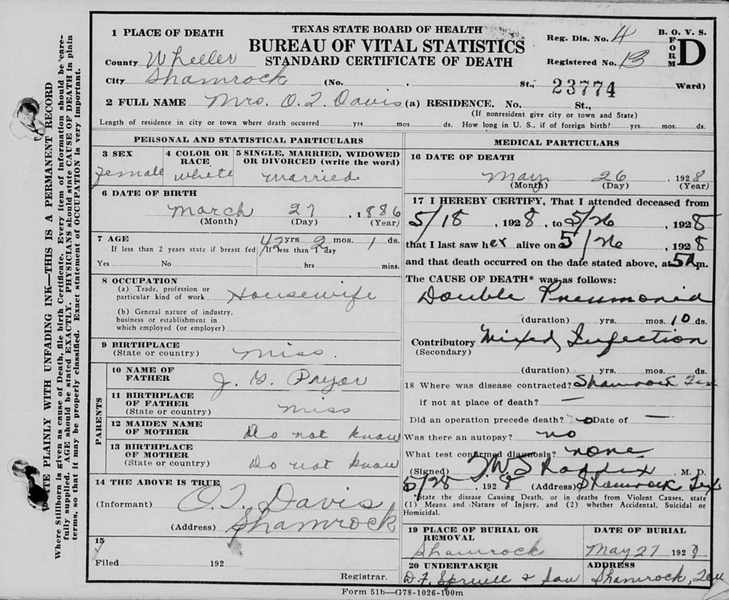 TEXAS STATE BOARD OF HEALTH
BUREAU OF VITAL STATISTICS
STANDARD CERTIFICATE OF DEATH
Reg. Dis. No. 4
Registered No. 13
B. O. V. S.
FORM D
1 PLACE OF DEATH
County Wheeler
City Shamrock (No. St., 23774 Ward)
2 FULL NAME Mrs. O. T. Davis (a) RESIDENCE. No. St.,
(If nonresident give city or town and State)
Length of residence in city or town where death occurred yrs mos. ds. How long in U. S., if of foreign birth? yrs. mos. ds.
PERSONAL AND STATISTICAL PARTICULARS
3 SEX
female
4 COLOR OR RACE
white
5 SINGLE, MARRIED, WIDOWED OR DIVORCED (write the word)
married
6 DATE OF BIRTH
March 27, 1886
(Month) (Day) (Year)
7 AGE 42 yrs 2 mos. 1 ds.
If less than 2 years state if breast fed If less than 1 day
Yes No hrs mins.
8 OCCUPATION
(a) Trade, profession or particular kind of work Housewife
(b) General nature of industry, business or establishment in which employed (or employer)
9 BIRTHPLACE
(State or country) Miss.
PARENTS
10 NAME OF FATHER J. G. Pryor
11 BIRTHPLACE OF FATHER
(State or country) Miss
12 MAIDEN NAME OF MOTHER Do not know
13 BIRTHPLACE OF MOTHER
(State or country) Do not know
14 THE ABOVE IS TRUE
(Informant) O. T. Davis
(Address) Shamrock
15
Filed 192
Registrar.
MEDICAL PARTICULARS
16 DATE OF DEATH
May 26 1928
(Month) (Day) (Year)
17 I HEREBY CERTIFY, That I attended deceased from
5/18, 1928, to 5/26, 1928
that I last saw her alive on 5/26, 1928
and that death occurred on the date stated above, at 5A m.
The CAUSE OF DEATH* was as follows:
Double Pneumonia
(duration) yrs. mos. 10 ds.
Contributory Mixed Infection
(Secondary)
(duration) yrs. mos. ds.
18 Where was disease contracted? Shamrock Tex
if not at place of death? —
Did an operation precede death? no Date of —
Was there an autopsy? no
What test confirmed diagnosis? none
(Signed) M. D.
5/28, 1928 (Address) Shamrock Tex
State the disease Causing Death, or in deaths from Violent Causes, state
(1) Means and Nature of Injury, and (2) whether Accidental, Suicidal or
Homicidal.
19 PLACE OF BURIAL OR REMOVAL
Shamrock
DATE OF BURIAL
May 27 1928
20 UNDERTAKER
D. F. Spruill & Son
ADDRESS
Shamrock, Tex
Form 51b—G78-1026-100m
WRITE PLAINLY WITH UNFADING INK—THIS IS A PERMANENT RECORD
Where Stillborn is given as cause of Death, file Birth Certificate. Every item of information should be care-
fully supplied. AGE should be stated EXACTLY. PHYSICIANS should state CAUSE OF DEATH in plain
terms, so that it may be properly classified. Exact statement of OCCUPATION is very important.